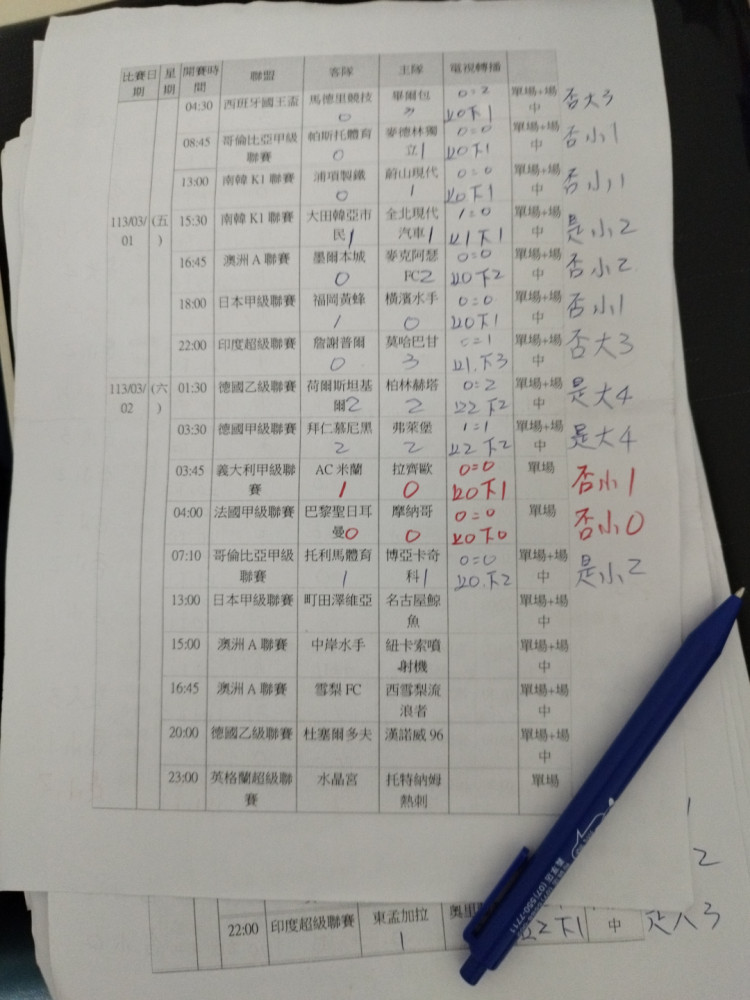 比賽日期 星期 開賽時間 聯盟 客隊 主隊 電視轉播
04:30 西班牙國王盃 馬德里競技 0 畢爾包 3 0=2 上0下1 單場+場中 否大3
08:45 哥倫比亞甲級聯賽 帕斯托體育 0 麥德林獨立 1 0=0 上0下1 單場+場中 否小1
13:00 南韓 K1 聯賽 浦項製鐵 0 蔚山現代 1 0=0 上0下1 單場+場中 否小1
113/03/01 (五) 15:30 南韓 K1 聯賽 大田韓亞市民 1 全北現代汽車 1 1=0 上1下1 單場+場中 是小2
16:45 澳洲 A 聯賽 墨爾本城 0 麥克阿瑟FC 2 0=0 上0下2 單場+場中 否小2
18:00 日本甲級聯賽 福岡黃蜂 1 橫濱水手 0 0=0 上0下1 單場+場中 否小1
22:00 印度超級聯賽 詹謝普爾 0 莫哈巴甘 3 =1 上1.下3 單場+場中 否大3
113/03/02 (六) 01:30 德國乙級聯賽 荷爾斯坦基爾 2 柏林赫塔 2 0=2 上2下2 單場+場中 是大4
03:30 德國甲級聯賽 拜仁慕尼黑 2 弗萊堡 2 1=1 上2下2 單場+場中 是大4
03:45 義大利甲級聯賽 AC 米蘭 1 拉齊歐 0 0=0 上0下1 單場 否小1
04:00 法國甲級聯賽 巴黎聖日耳曼 0 摩納哥 0 0=0 上0下0 單場 否小0
07:10 哥倫比亞甲級聯賽 托利馬體育 1 博亞卡奇科 1 0=0 上0.下2 單場+場中 是小2
13:00 日本甲級聯賽 町田澤維亞 名古屋鯨魚 單場+場中
15:00 澳洲 A 聯賽 中岸水手 紐卡索噴射機 單場+場中
16:45 澳洲 A 聯賽 雪梨 FC 西雪梨流浪者 單場+場中
20:00 德國乙級聯賽 杜塞爾多夫 漢諾威 96 單場+場中
23:00 英格蘭超級聯賽 水晶宮 托特納姆熱刺 單場
2
22:00 印度超級聯賽 東孟加拉 1 奧里 上2下1 中 是大3